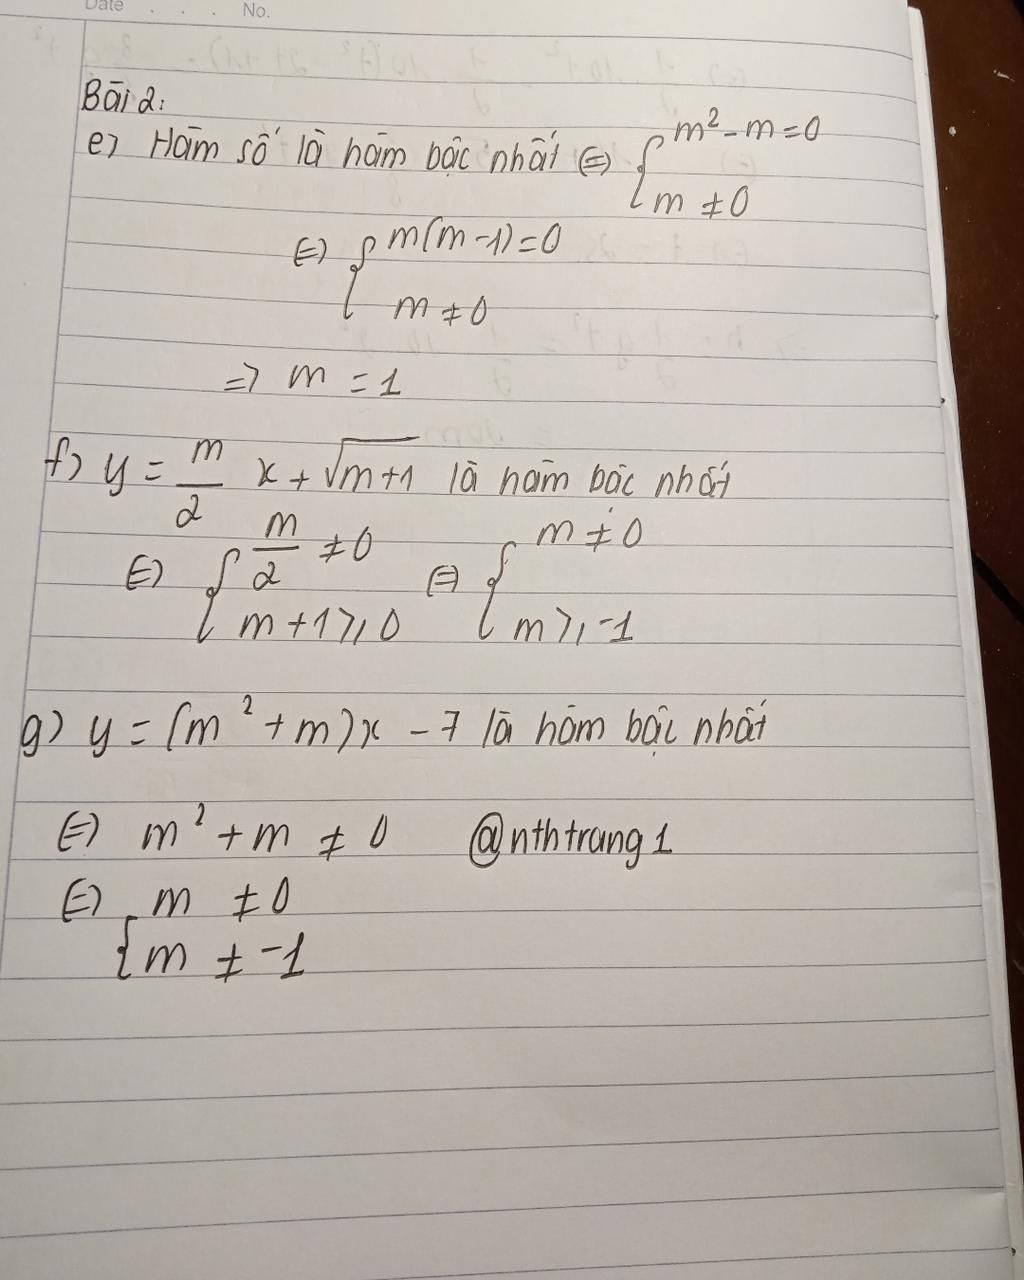 Date . . . No.
Bài 2:
e) Hàm số là hàm bậc nhất <=> { m² - m = 0
m ≠ 0
<=> { m(m-1) = 0
m ≠ 0
=> m = 1
f) y = m/2 x + √(m+1) là hàm bậc nhất
<=> { m/2 ≠ 0 <=> { m ≠ 0
m + 1 ≥ 0 m ≥ -1
g) y = (m² + m)x - 7 là hàm bậc nhất
<=> m² + m ≠ 0 @nthtrang1
<=> { m ≠ 0
m ≠ -1